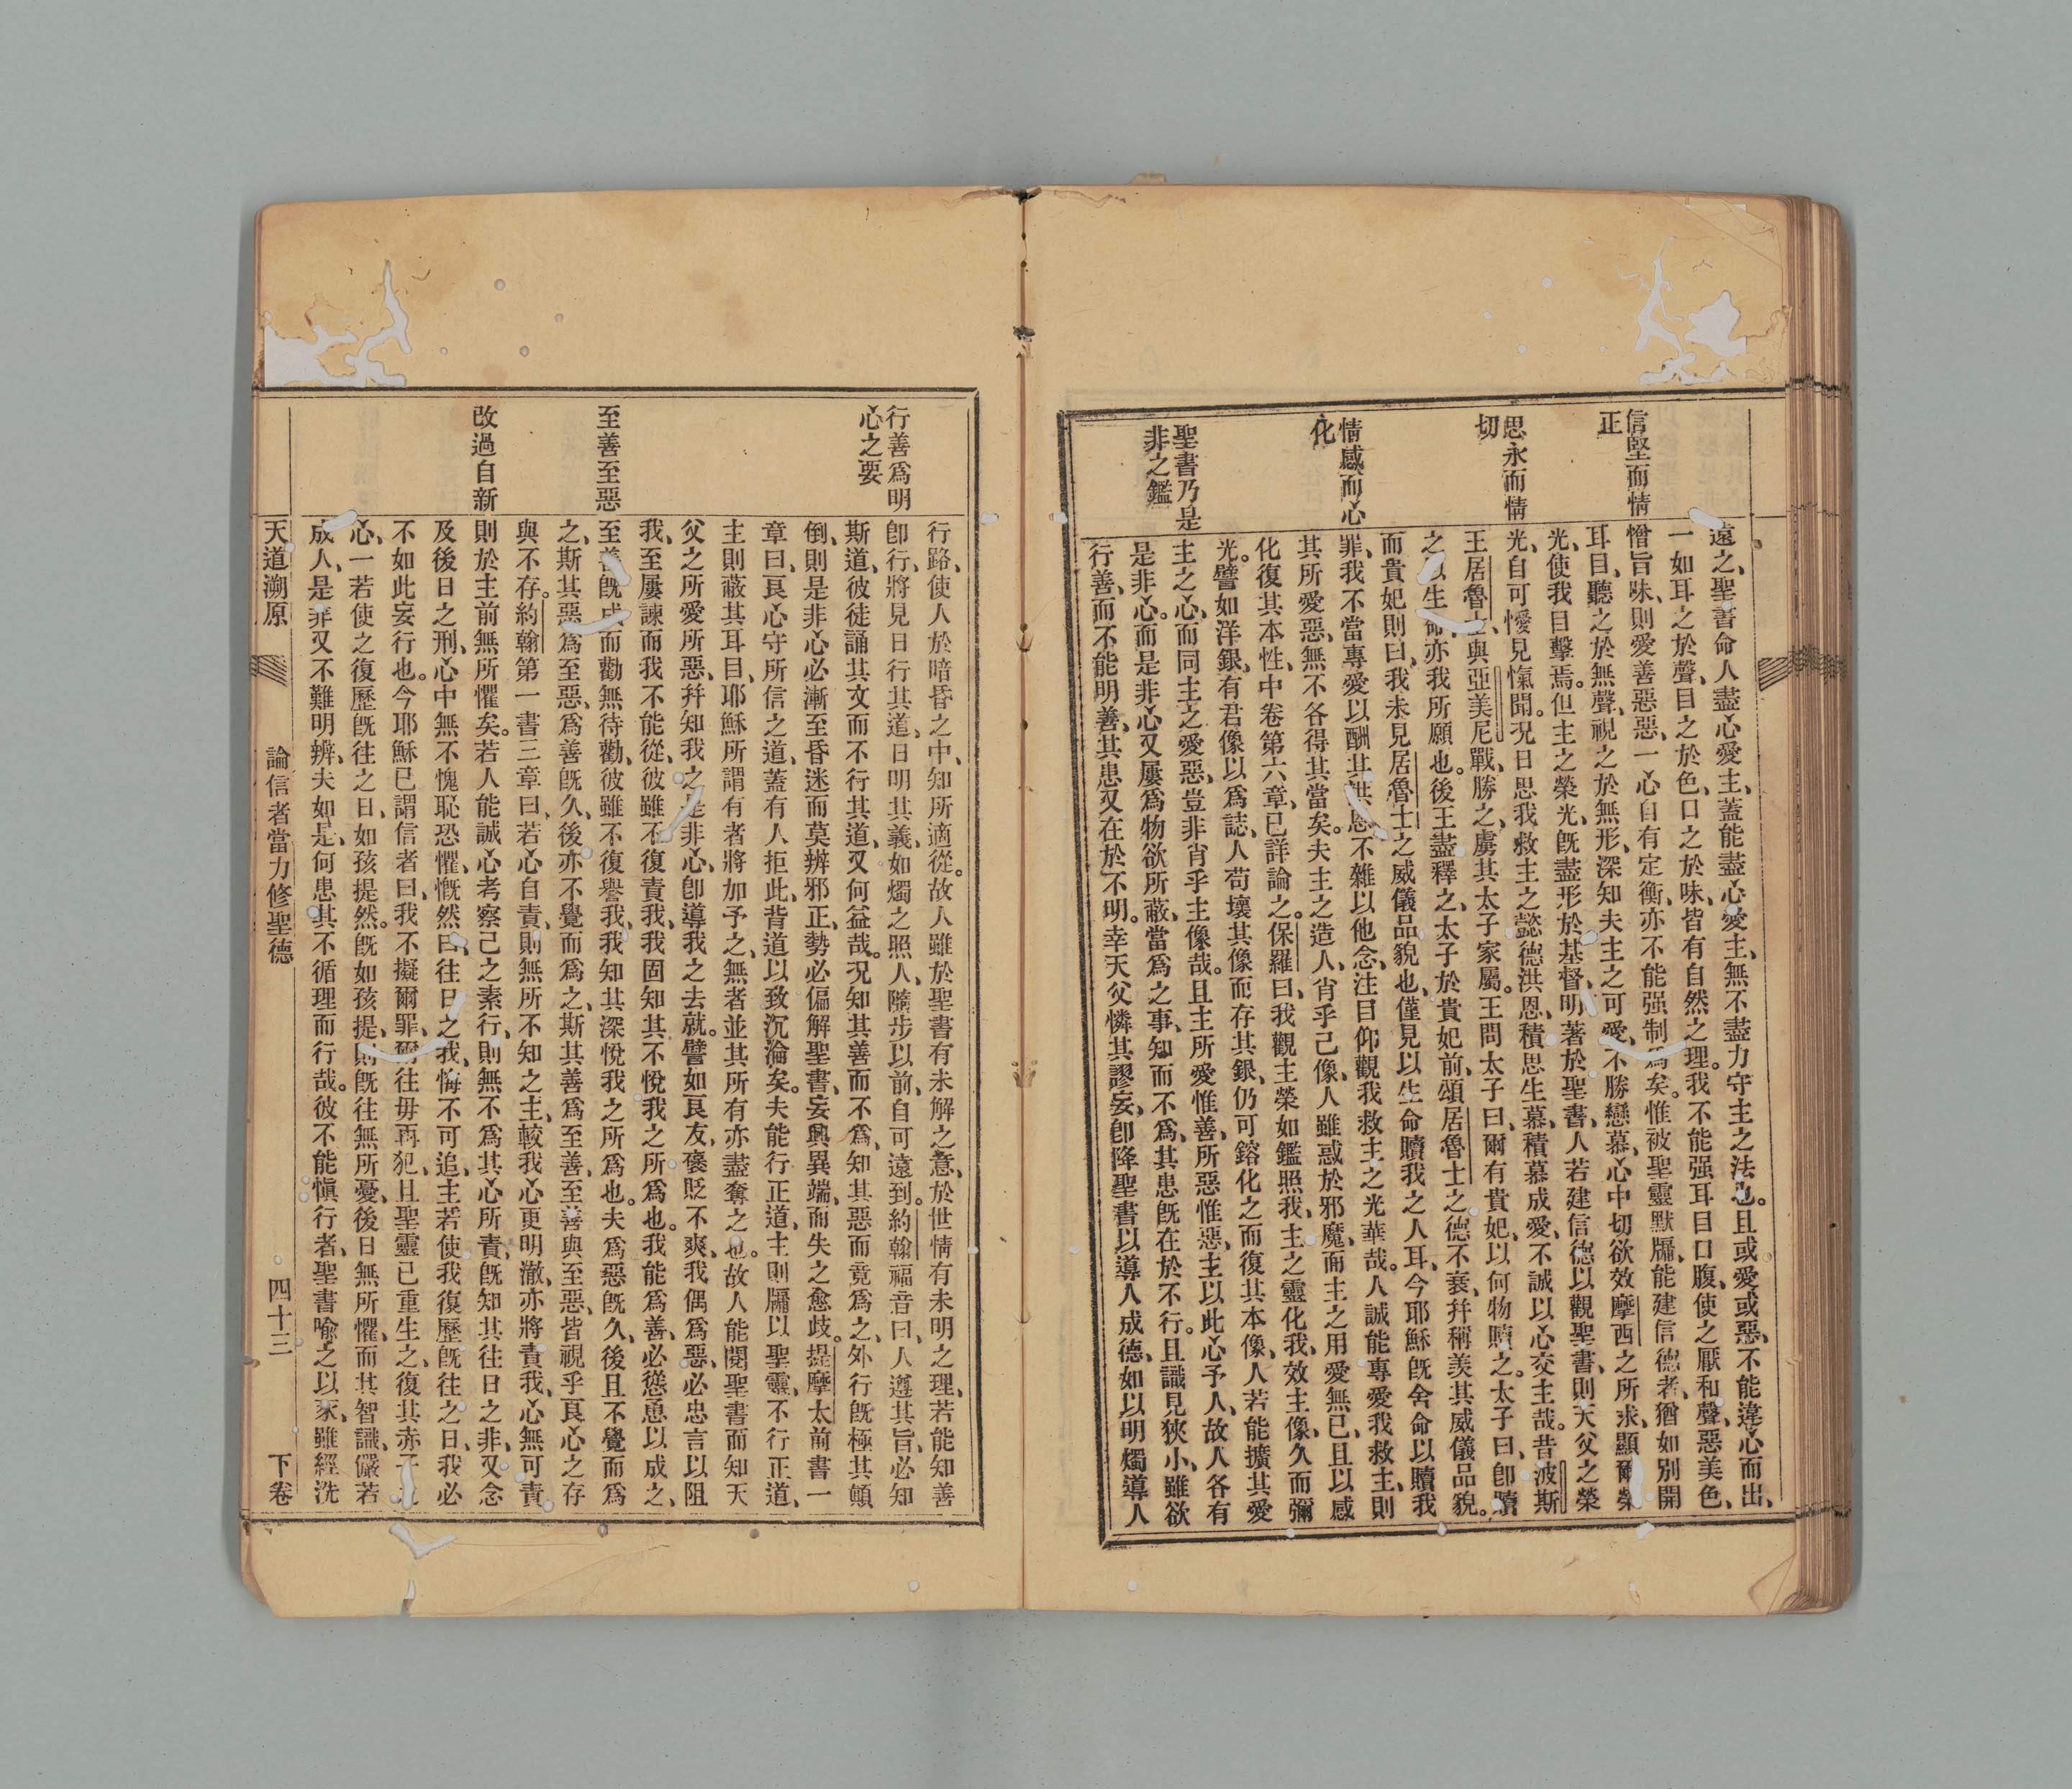 信堅而情
正
思永而情
切
情感而心
化
聖書乃是
非之鑑
遠之、聖書命人盡心愛主、蓋能盡心愛主、無不盡力守主之法也。且或愛或惡、不能違心而出、
一如耳之於聲、目之於色、口之於味、皆有自然之理。我不能强耳目口腹、使之厭和聲、惡美色、
憎旨味、則愛善惡惡、一心自有定衡、亦不能强制爲矣。惟被聖靈默牖、能建信德者、猶如別開
耳目、聽之於無聲、視之於無形、深知夫主之可愛、不勝戀慕、心中切欲效摩西之所求、顯爾榮
光、使我目擊焉。但主之榮光、旣盡形於基督、明著於聖書、人若建信德以觀聖書、則天父之榮
光、自可僾見愾聞。况日思我救主之懿德洪恩、積思生慕、積慕成愛、不誠以心交主哉。昔波斯
王居魯士、與亞美尼戰、勝之、虜其太子家屬。王問太子曰、爾有貴妃、以何物贖之。太子曰、卽贖
之以生命、亦我所願也。後王盡釋之、太子於貴妃前、頌居魯士之德不衰、幷稱美其威儀品貌。
而貴妃則曰、我未見居魯士之威儀品貌也、僅見以生命贖我之人耳、今耶穌旣舍命以贖我
罪、我不當專愛以酬其洪恩、不雜以他念、注目仰觀我救主之光華哉。人誠能專愛我救主、則
其所愛惡、無不各得其當矣。夫主之造人、肖乎己像、人雖惑於邪魔、而主之用愛無已、且以感
化復其本性、中卷第六章、已詳論之。保羅曰、我觀主榮如鑑照我、主之靈化我、效主像、久而彌
光。譬如洋銀、有君像以爲誌、人苟壞其像而存其銀、仍可鎔化之而復其本像、人若能擴其愛
主之心、而同主之愛惡、豈非肖乎主像哉。且主所愛惟善、所惡惟惡、主以此心予人、故人各有
是非心。而是非心又屢爲物欲所蔽、當爲之事、知而不爲、其患旣在於不行。且識見狹小、雖欲
行善、而不能明善、其患又在於不明。幸天父憐其謬妄、卽降聖書以導人成德、如以明燭導人
行善爲明
心之要
至善至惡
改過自新
行路、使人於暗昏之中、知所適從。故人雖於聖書有未解之意、於世情有未明之理、若能知善
卽行、將見日行其道、日明其義、如燭之照人、隨步以前、自可遠到。約翰福音曰、人遵其旨、必知
斯道、彼徒誦其文而不行其道、又何益哉。况知其善而不爲、知其惡而竟爲之、外行旣極其顛
倒、則是非心必漸至昏迷而莫辨邪正、勢必偏解聖書、妄興異端、而失之愈歧。提摩太前書一
章曰、良心守所信之道、蓋有人拒此、背道以致沉淪矣。夫能行正道、主則牖以聖靈、不行正道、
主則蔽其耳目、耶穌所謂有者將加予之、無者並其所有亦盡奪之也。故人能閱聖書而知天
父之所愛所惡、幷知我之是非心、卽導我之去就。譬如良友、褒貶不爽、我偶爲惡、必忠言以阻
我、至屢諫而我不能從、彼雖不復責我、我固知其不悅我之所爲也。我能爲善、必慫恿以成之、
至善旣成而勸無待勸、彼雖不復譽我、我知其深悅我之所爲也。夫爲惡旣久、後且不覺而爲
之、斯其惡爲至惡、爲善旣久、後亦不覺而爲之、斯其善爲至善、至善與至惡、皆視乎良心之存
與不存。約翰第一書三章曰、若心自責、則無所不知之主、較我心更明澈、亦將責我、心無可責、
則於主前無所懼矣。若人能誠心考察己之素行、則無不爲其心所責、旣知其往日之非、又念
及後日之刑、心中無不愧恥恐懼、慨然曰、往日之我、悔不可追、主若使我復歷旣往之日、我必
不如此妄行也。今耶穌已謂信者曰、我不擬爾罪、爾往毋再犯、且聖靈已重生之、復其赤子之
心、一若使之復歷旣往之日、如孩提然。旣如孩提、則旣往無所憂、後日無所懼、而其智識儼若
成人、是非又不難明辨、夫如是、何患其不循理而行哉。彼不能愼行者、聖書喩之以豕、雖經洗
天道溯原
論信者當力修聖德
四十三
下卷